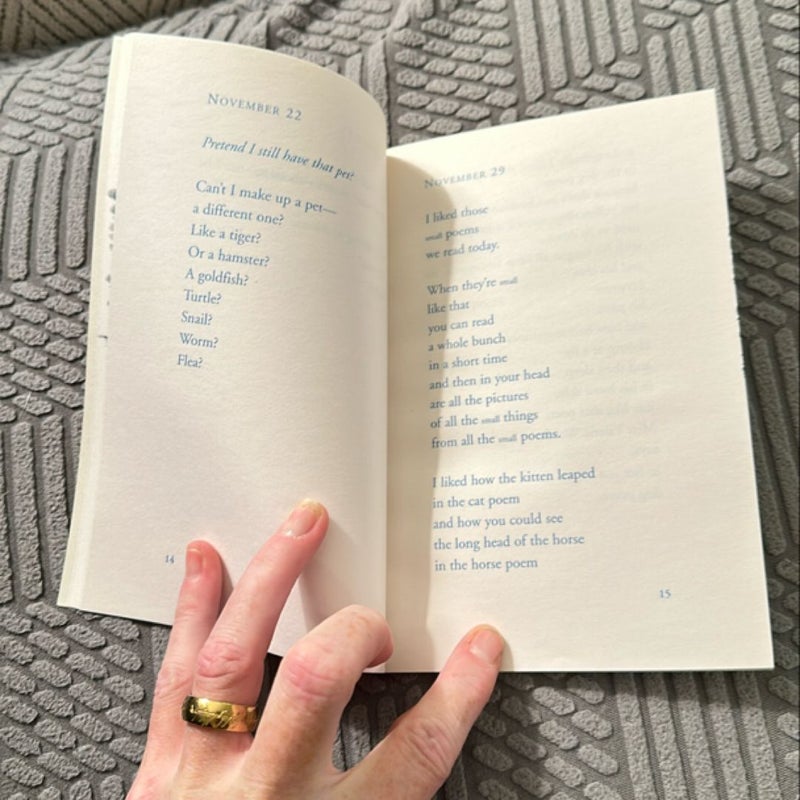 NOVEMBER 22
Pretend I still have that pet?
Can't I make up a pet—
a different one?
Like a tiger?
Or a hamster?
A goldfish?
Turtle?
Snail?
Worm?
Flea?
14
NOVEMBER 29
I liked those
small poems
we read today.
When they're small
like that
you can read
a whole bunch
in a short time
and then in your head
are all the pictures
of all the small things
from all the small poems.
I liked how the kitten leaped
in the cat poem
and how you could see
the long head of the horse
in the horse poem
15